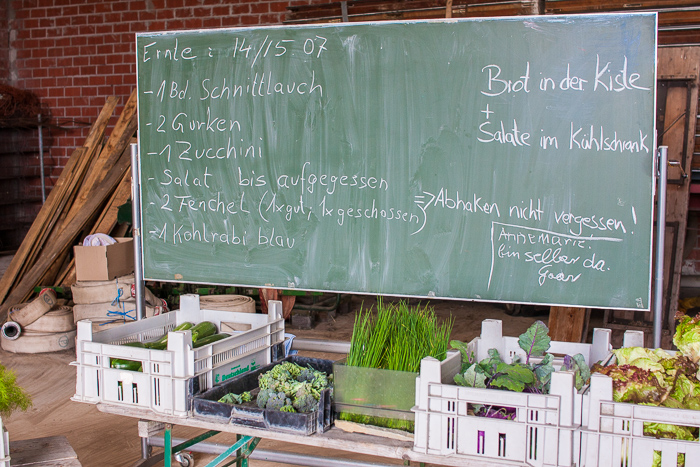 Ernte : 14/15 07
- 1 Bd. Schnittlauch
- 2 Gurken
- 1 Zucchini
- Salat bis aufgegessen
- 2 Fenchel (1x gut; 1x geschossen)
- 1 Kohlrabi blau
Brot in der Kiste
+
Salate im Kühlschrank
=> Abhaken nicht vergessen!
Annemarie:
Bin selber da.